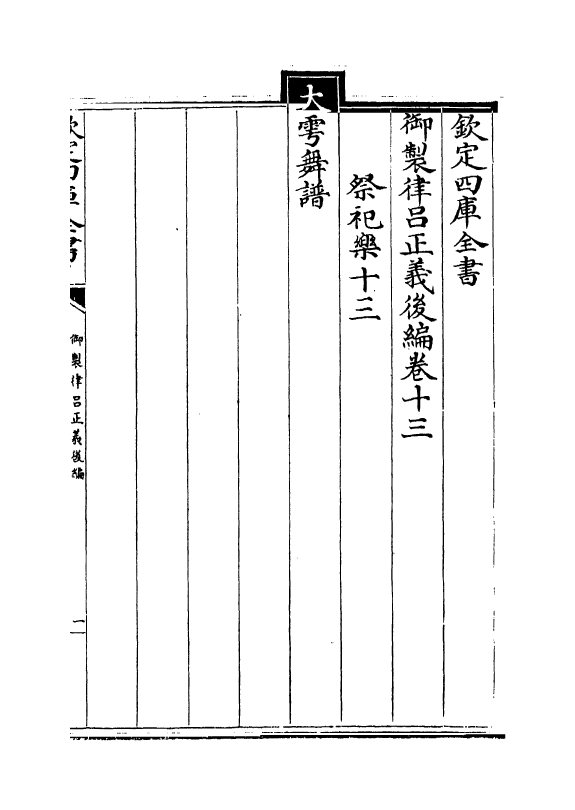 欽定四庫全書
御製律吕正義後編卷十三
祭祀樂十三
大雩舞譜
欽定四庫全書
御製律吕正義後編
一